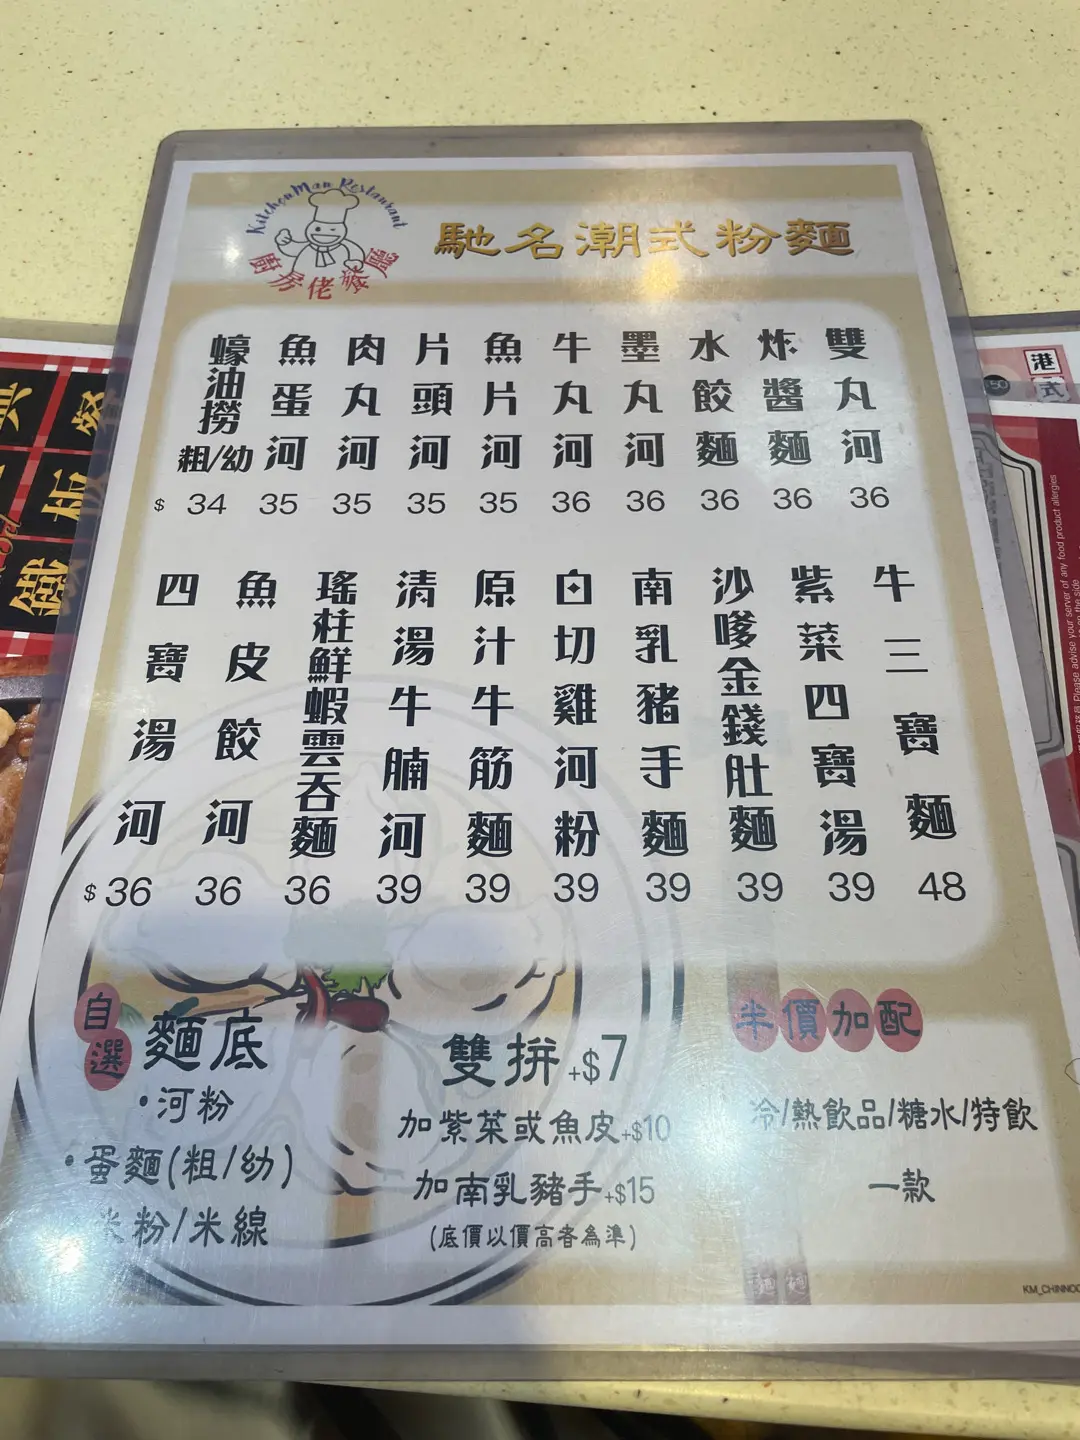 KitchenMan Restaurant
廚房佬餐廳
馳名潮式粉麵
雙丸河 36
炸醬麵 36
水餃麵 36
墨丸河 36
牛丸河 36
魚片河 35
片頭河 35
肉丸河 35
魚蛋河 35
蠔油撈粗/幼 $ 34
牛三寶麵 48
紫菜四寶湯 39
沙嗲金錢肚麵 39
南乳豬手麵 39
白切雞河粉 39
原汁牛筋麵 39
清湯牛腩河 39
瑤柱鮮蝦雲吞麵 36
魚皮餃河 36
四寶湯河 $ 36
自選 麵底
•河粉
•蛋麵(粗/幼)
米粉/米線
雙拼+$7
加紫菜或魚皮+$10
加南乳豬手+$15
(底價以價高者為準)
半價加配
冷/熱飲品/糖水/特飲
一款
港式
鐵板餐
Please advise your server of any food product allergies